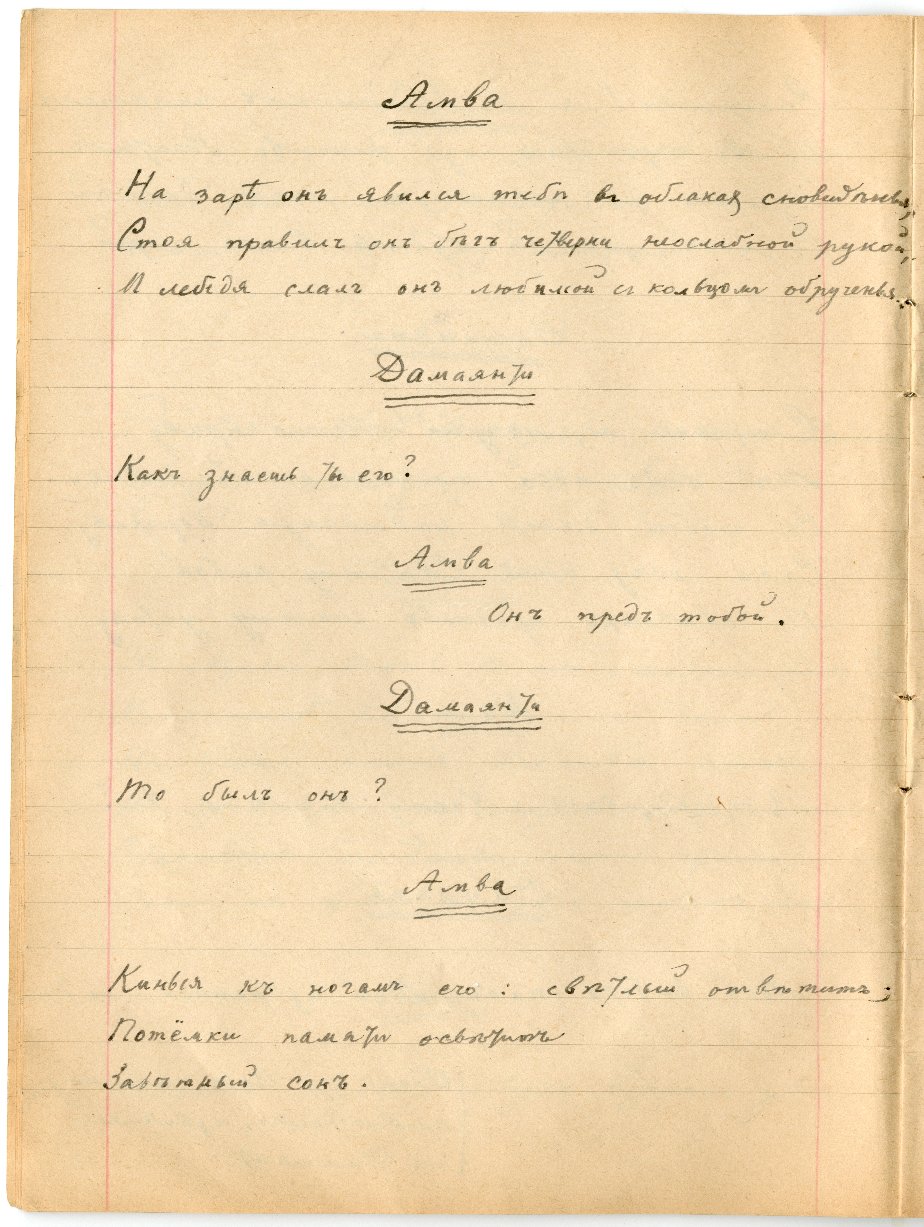 Амва
На зарѣ онъ явился тебѣ въ облакахъ сновидѣнья,
Стоя правилъ онъ бѣгъ четверни неослабной рукой,
И лебедя слалъ онъ любимой съ кольцомъ обрученья.
Дамаянти
Какъ знаешь ты его?
Амва
Онъ предъ тобой.
Дамаянти
То былъ онъ?
Амва
Кинься къ ногамъ его: свѣтлый отвѣтитъ;
Потёмки памяти освѣтитъ
Завѣтный сонъ.